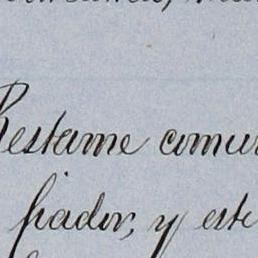 Restame comun
fiador, y este